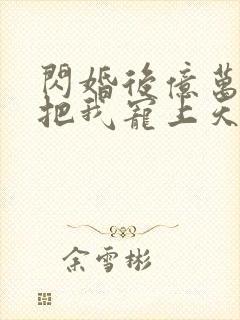 閃婚後億萬
把我寵上天
余雪彬